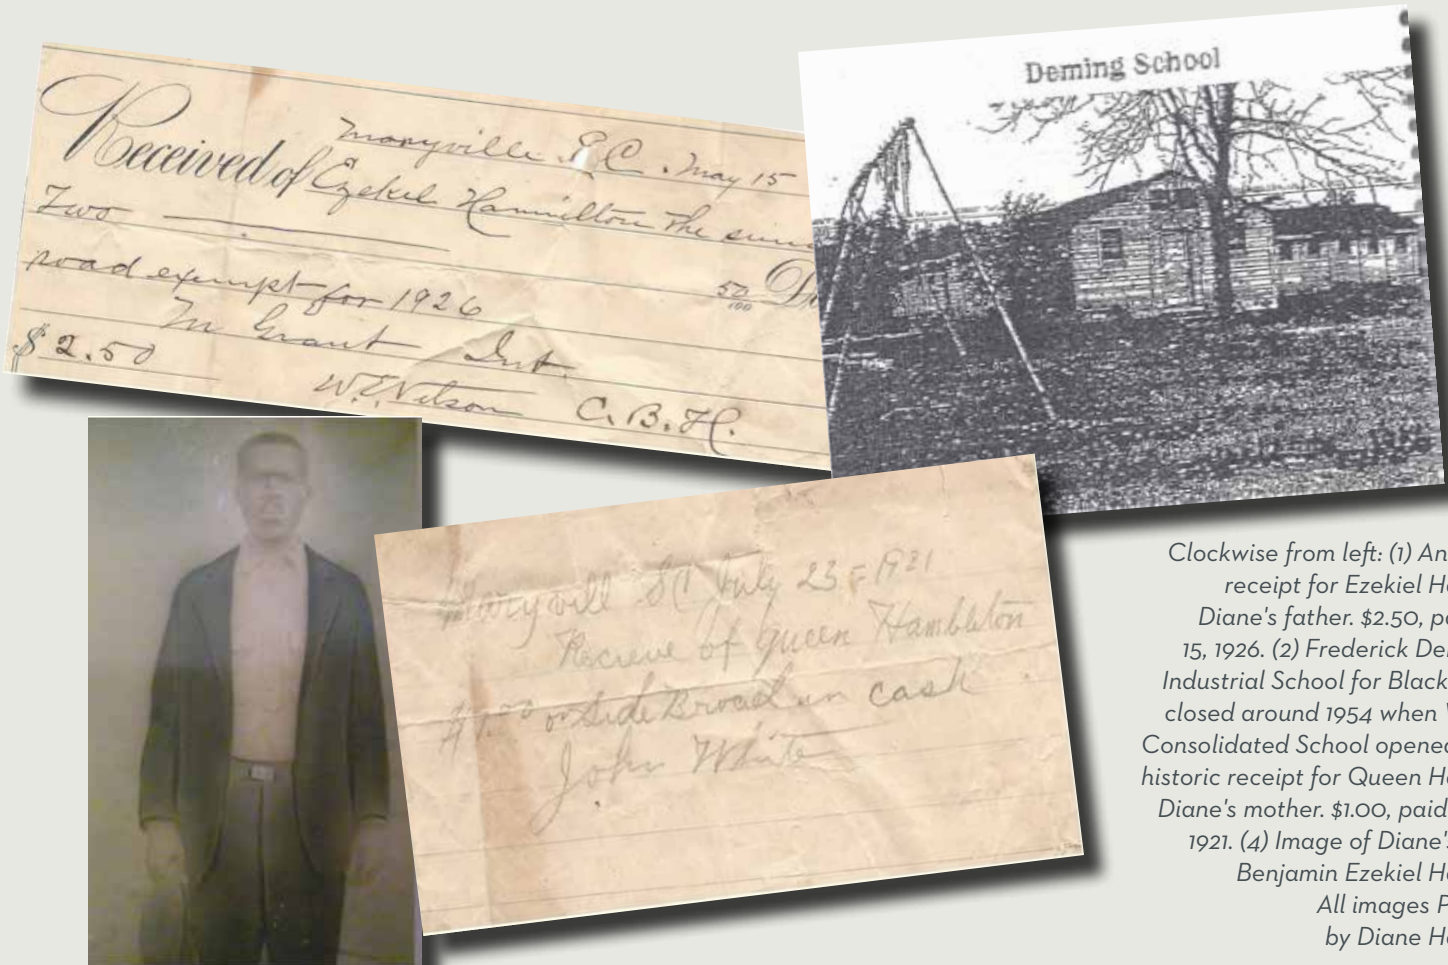 Maryville S.C. May 15
Received of Ezekiel Hamilton The
Two 50/100
road exempt for 1926
$2.50
W.E. Nelson C.B.H.
Deming School
Maryvill SC July 23 = 1921
Recieve of Queen Hambleton
$1.00 on Side Broad in cash
John White
Clockwise from left: (1) An
receipt for Ezekiel H
Diane's father. $2.50, p
15, 1926. (2) Frederick De
Industrial School for Black
closed around 1954 when
Consolidated School opened
historic receipt for Queen H
Diane's mother. $1.00, paid
1921. (4) Image of Diane's
Benjamin Ezekiel H
All images P
by Diane H